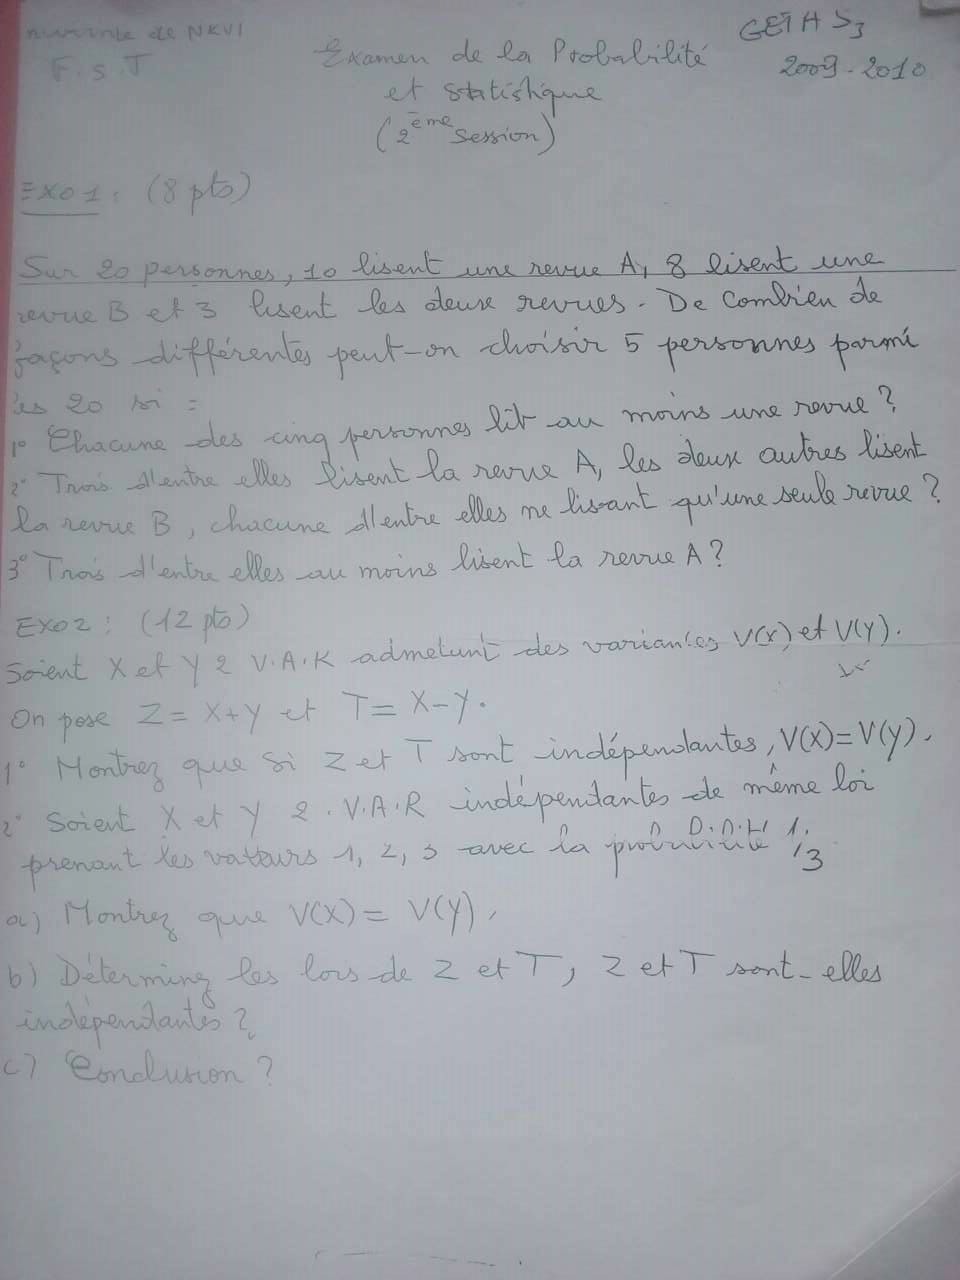 de NKVI
GETAH S3
F.S.T
Examen de la Probabilité
2009-2010
et statistique
(2ème Session)
EXO1: (8 pts)
Sur 20 personnes, 10 lisent une revue A, 8 lisent une
revue B et 3 lisent les deux revues. De Combien de
façons différentes peut-on choisir 5 personnes parmi
les 20 si :
1° Chacune des cinq personnes lit au moins une revue ?
2° Trois d'entre elles lisent la revue A, les deux autres lisent
la revue B, chacune d'entre elles ne lisant qu'une seule revue ?
3° Trois d'entre elles au moins lisent la revue A ?
EXO2: (12 pts)
Soient X et Y 2 V.A.R admettant des variances V(X) et V(Y).
On pose Z = X+Y et T = X-Y.
1° Montrez que si Z et T sont indépendantes, V(X)=V(Y).
2° Soient X et Y 2 V.A.R indépendantes de même loi
prenant les valeurs 1, 2, 3 avec la probabilité 1/3
a) Montrez que V(X) = V(Y),
b) Déterminez les lois de Z et T, Z et T sont-elles
indépendantes ?
c) Conclusion ?